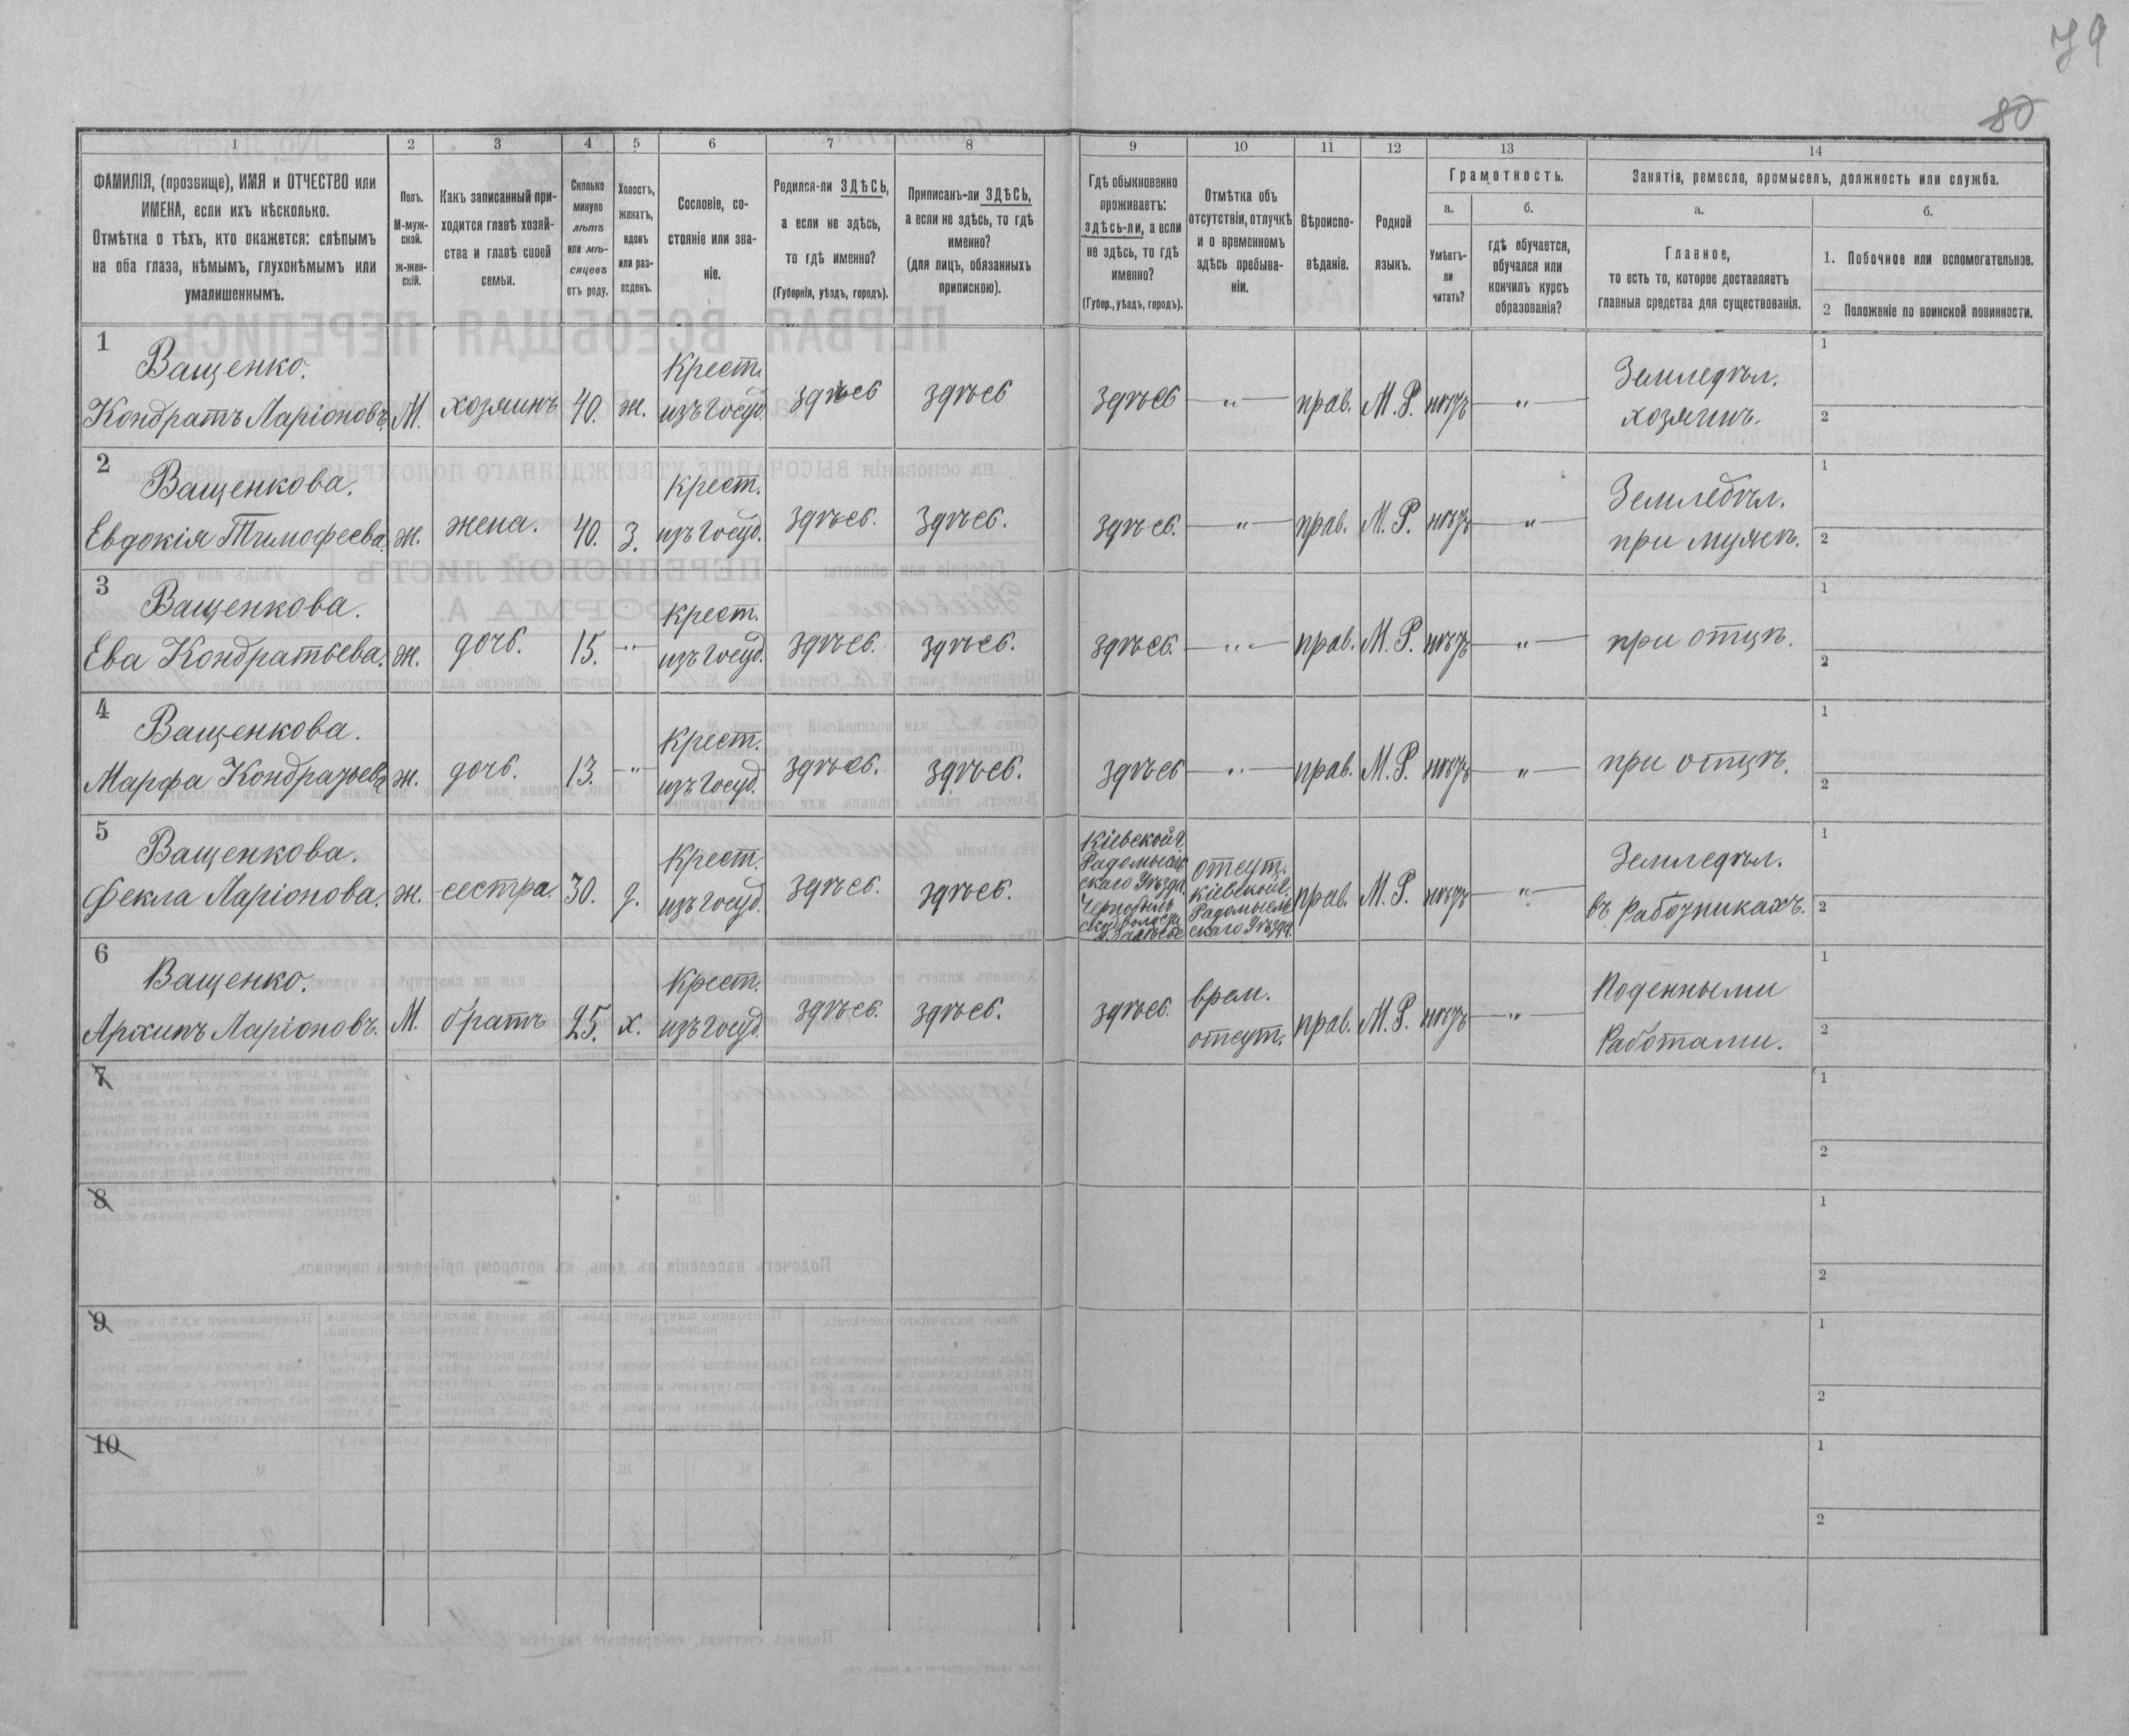 79
80
1
2
3
4
5
6
7
8
9
10
11
12
13
14
ФАМИЛІЯ, (прозвище), ИМЯ и ОТЧЕСТВО или
ИМЕНА, если ихъ нѣсколько.
Отмѣтка о тѣхъ, кто окажется: слѣпымъ
на оба глаза, нѣмымъ, глухонѣмымъ или
умалишеннымъ.
Полъ.
М-муж-
ской.
ж-жен-
скій.
Какъ записанный при-
ходится главѣ хозяй-
ства и главѣ своей
семьи.
Сколько
минуло
лѣтъ
или мѣ-
сяцевъ
отъ роду.
Холостъ,
женатъ,
вдовъ
или раз-
веденъ.
Сословіе, со-
стояніе или зва-
ніе.
Родился-ли ЗДѢСЬ,
а если не здѣсь,
то гдѣ именно?
(Губернія, уѣздъ, городъ).
Приписанъ-ли ЗДѢСЬ,
а если не здѣсь, то гдѣ
именно?
(для лицъ, обязанныхъ
припискою).
Гдѣ обыкновенно
проживаетъ:
здѣсь-ли, а если
не здѣсь, то гдѣ
именно?
(Губер., уѣздъ, городъ).
Отмѣтка объ
отсутствіи, отлучкѣ
и о временномъ
здѣсь пребыва-
ніи.
Вѣроиспо-
вѣданіе.
Родной
языкъ.
Грамотность.
а.
Умѣетъ-
ли
читать?
б.
гдѣ обучается,
обучался или
кончилъ курсъ
образованія?
Занятія, ремесло, промыселъ, должность или служба.
а.
Главное,
то есть то, которое доставляетъ
главныя средства для существованія.
б.
1. Побочное или вспомогательное.
2 Положеніе по воинской повинности.
1
Ващенко.
Кондратъ Ларіоновъ. М. хозяинъ 40. ж. Крест. изъ госуд. здѣсь здѣсь здѣсь — „ — прав. М. Р. нѣтъ — „ — Земледѣл.
хозяинъ.
1
2
2
Ващенкова.
Евдокія Тимофеева. ж. жена. 40. З. Крест. изъ госуд. здѣсь. здѣсь. здѣсь. — „ — прав. М. Р. нѣтъ — „ — Земледѣл.
при мужѣ.
1
2
3
Ващенкова.
Ева Кондратьева. ж. дочь. 15. — „ — Крест. изъ госуд. здѣсь. здѣсь. здѣсь. — „ — прав. М. Р. нѣтъ — „ — при отцѣ.
1
2
4
Ващенкова.
Марфа Кондратьева ж. дочь. 13. — „ — Крест. изъ госуд. здѣсь. здѣсь. здѣсь — „ — прав. М. Р. нѣтъ — „ — при отцѣ.
1
2
5
Ващенкова.
Фекла Ларіонова. ж. сестра. 30. д. Крест. изъ госуд. здѣсь. здѣсь.
Кіевской г.
Радомысль
скаго Уѣзда.
Чернобыль
ской волости
отсут.
Кіевской г.
Радомысль
скаго Уѣзда.
прав. М. Р. нѣтъ — „ — Земледѣл.
въ работникахъ.
1
2
6
Ващенко.
Архипъ Ларіоновъ. М. братъ 25. х. Крест. изъ госуд. здѣсь. здѣсь. здѣсь. врем.
отсут. прав. М. Р. нѣтъ — „ — Поденными
Работами.
1
2
7
1
2
8
1
2
9
1
2
10
1
2